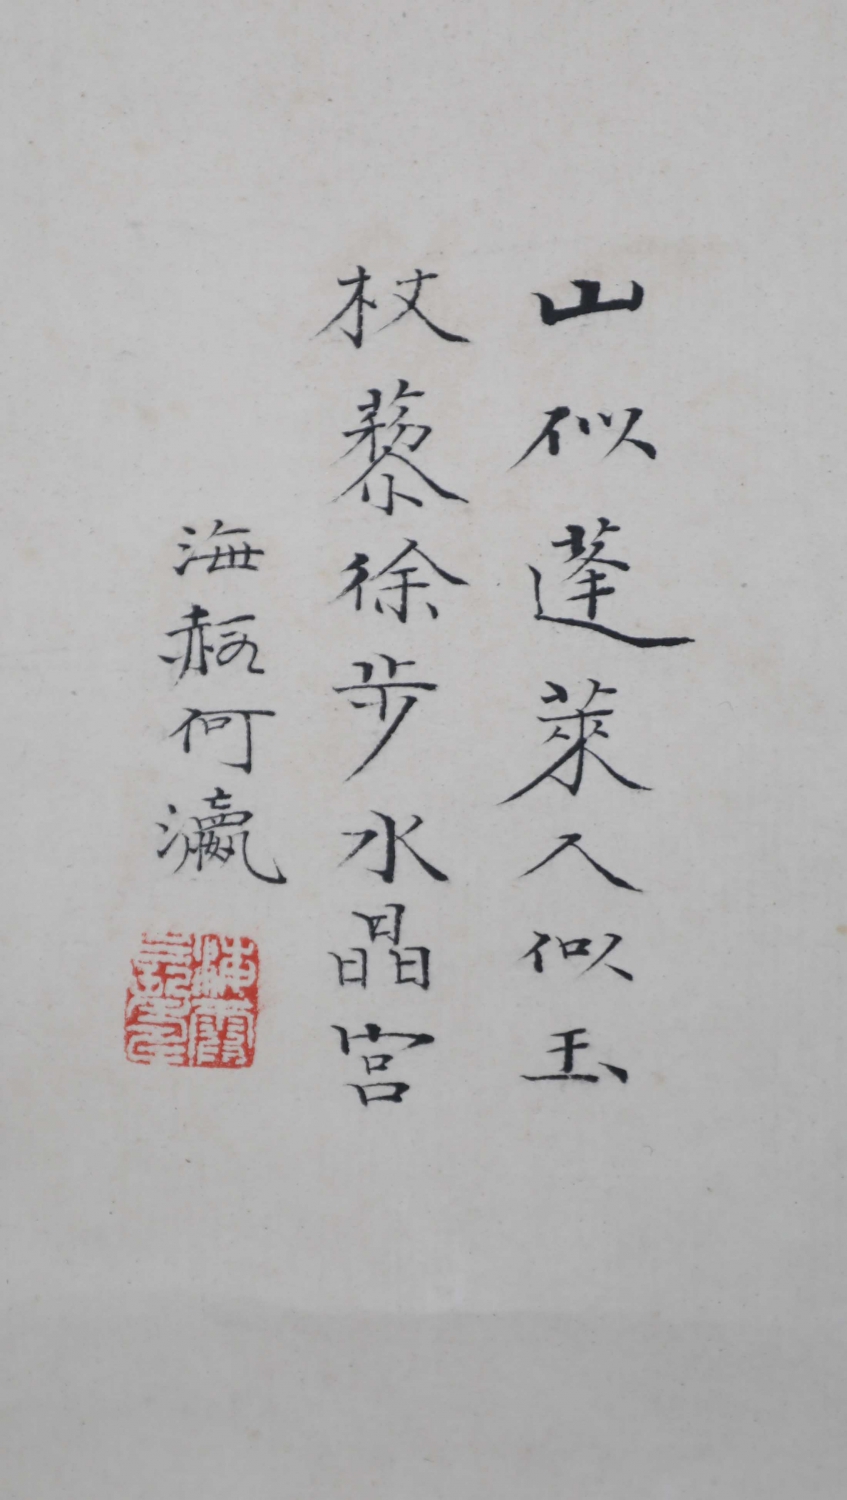 山似蓬萊人似玉
杖藜徐步水晶宮
海赮何瀛